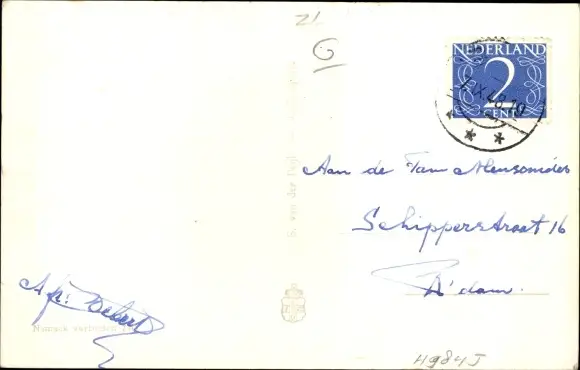 ZL
G
NEDERLAND
2
CENT
IX.48
Aan de Fam Mensonides
Schipperstraat 16
A'dam.
Afz: Debert
S. van der
Nadruk verboden
4984J